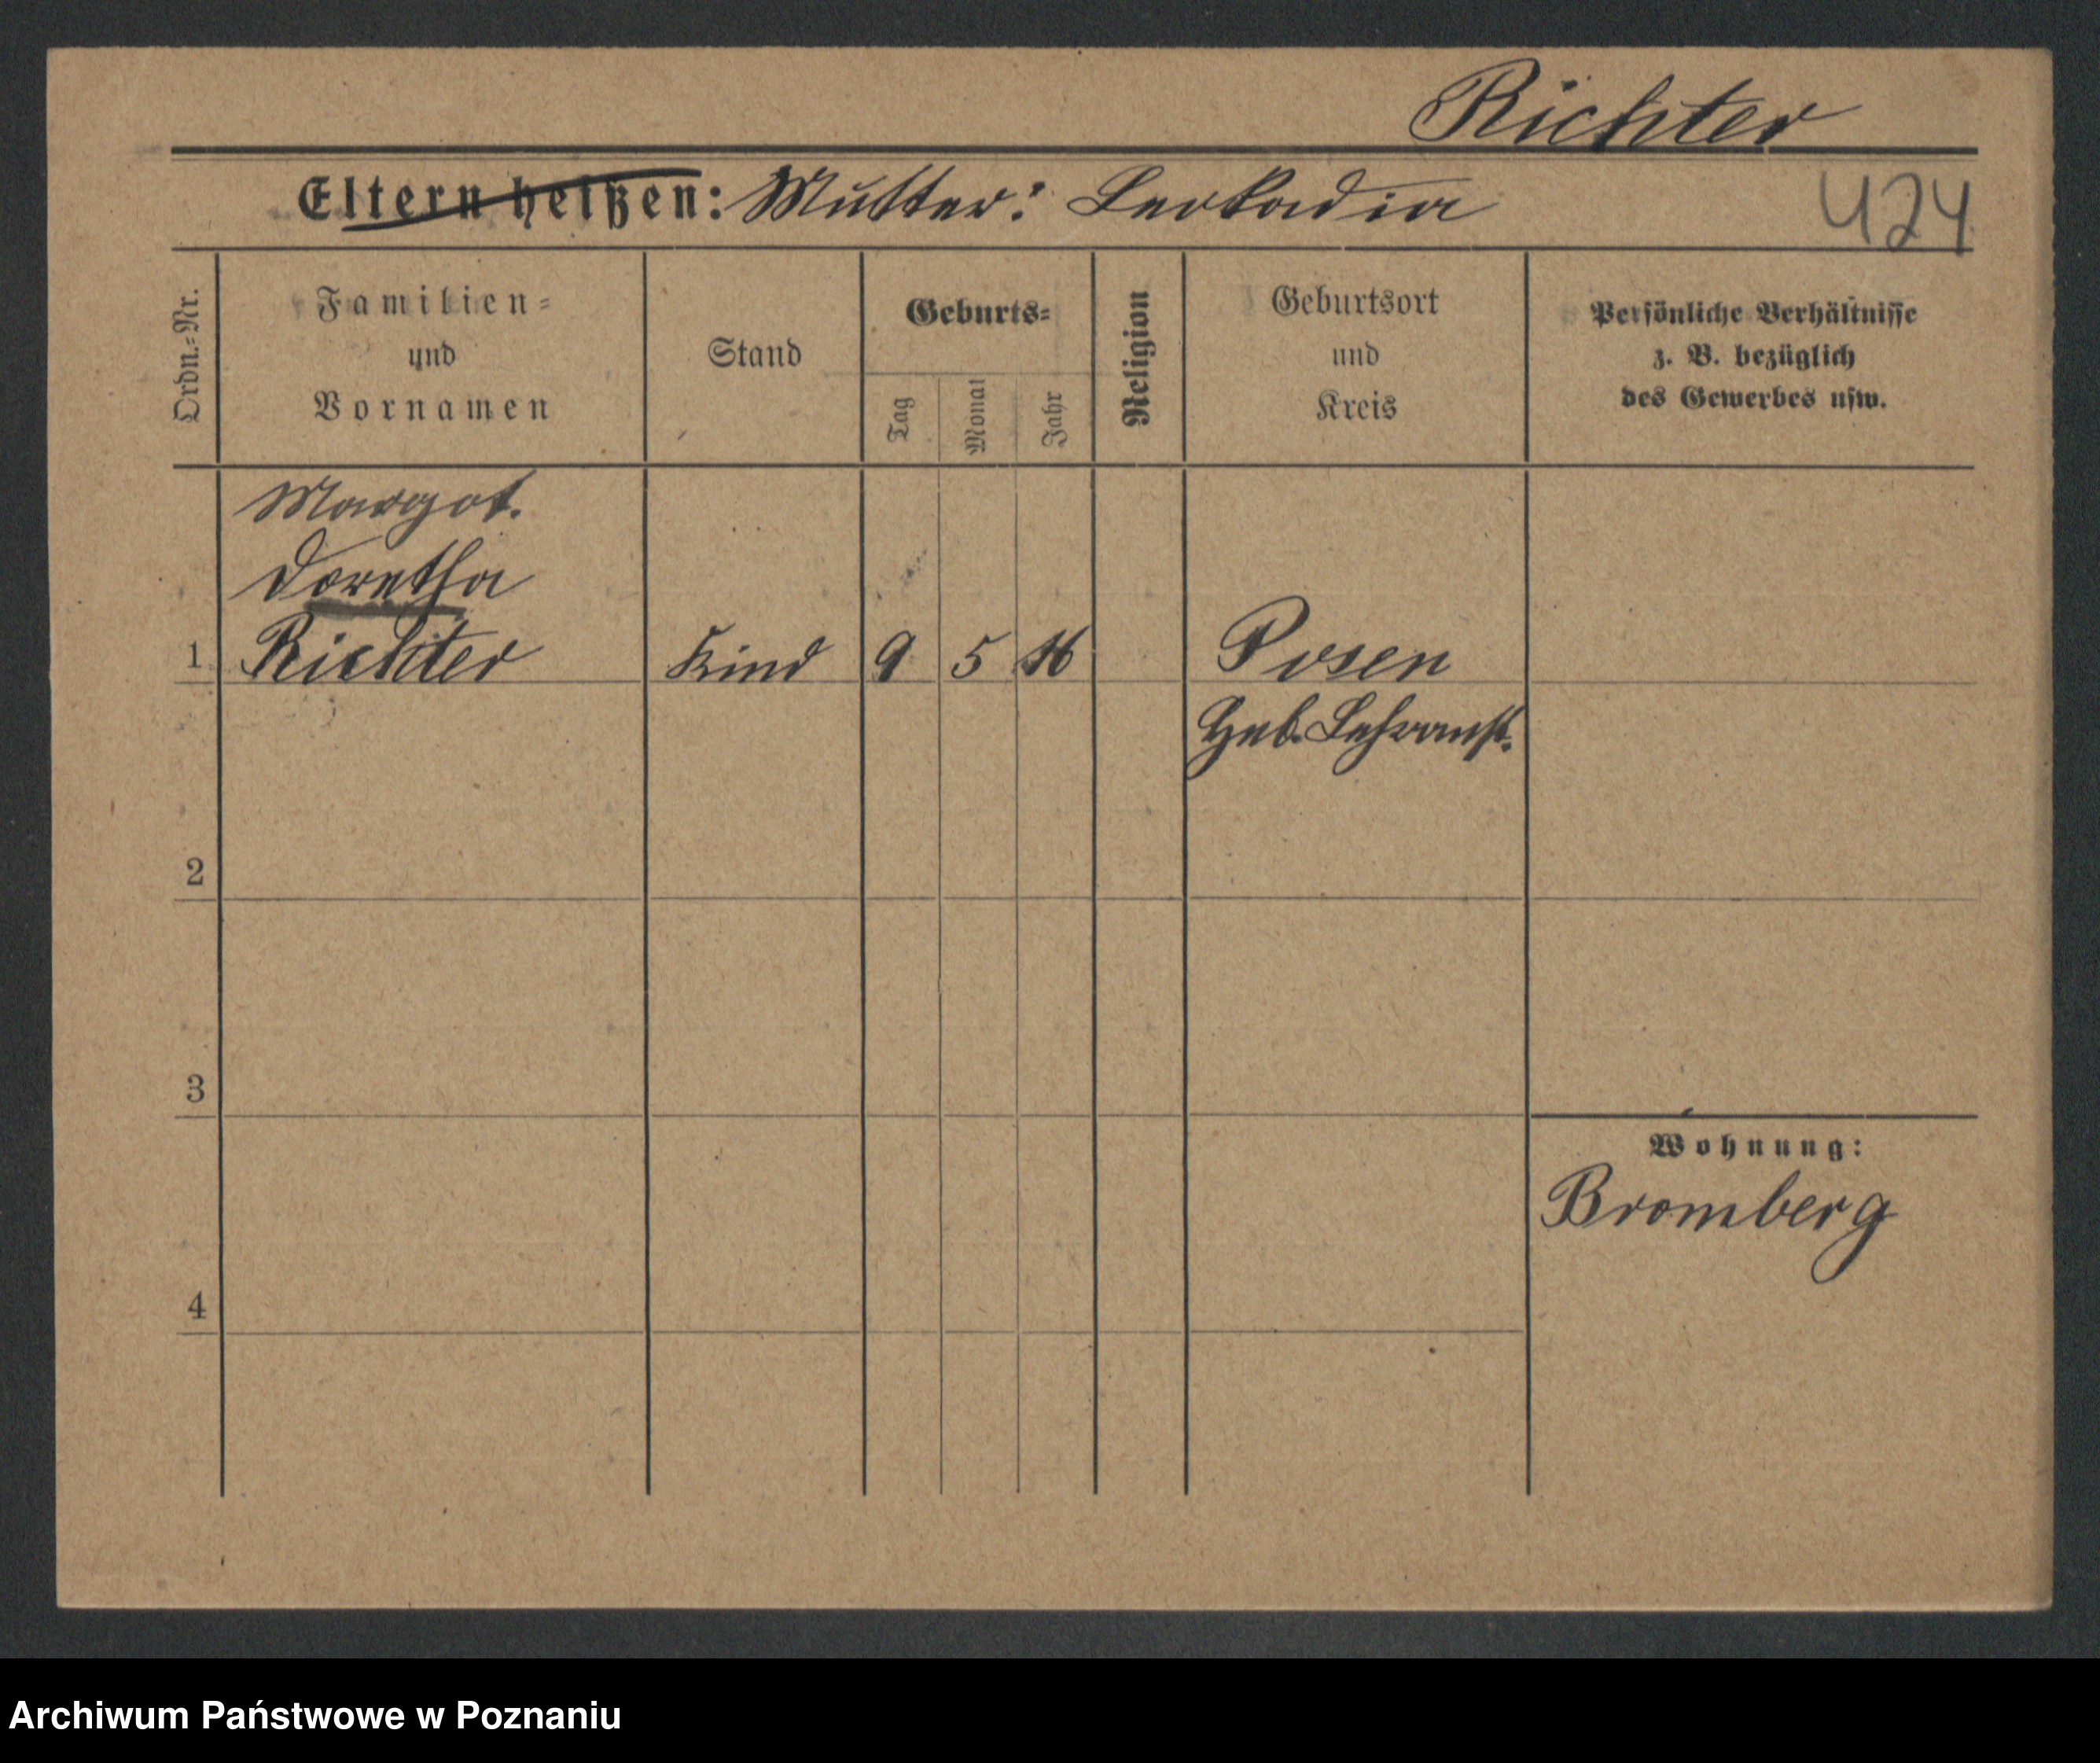 Richter
Eltern heißen: Mutter: Leokadia
424
Ordn.-Nr.
Familien-
und
Vornamen
Stand
Geburts-
Tag
Monat
Jahr
Religion
Geburtsort
und
Kreis
Persönliche Verhältnisse
z. B. bezüglich
des Gewerbes usw.
Margot.
Doretha
1 Richter Kind 9 5 16 Posen
Heb. Lehranst.
2
3
Wohnung:
Bromberg
4
Archiwum Państwowe w Poznaniu